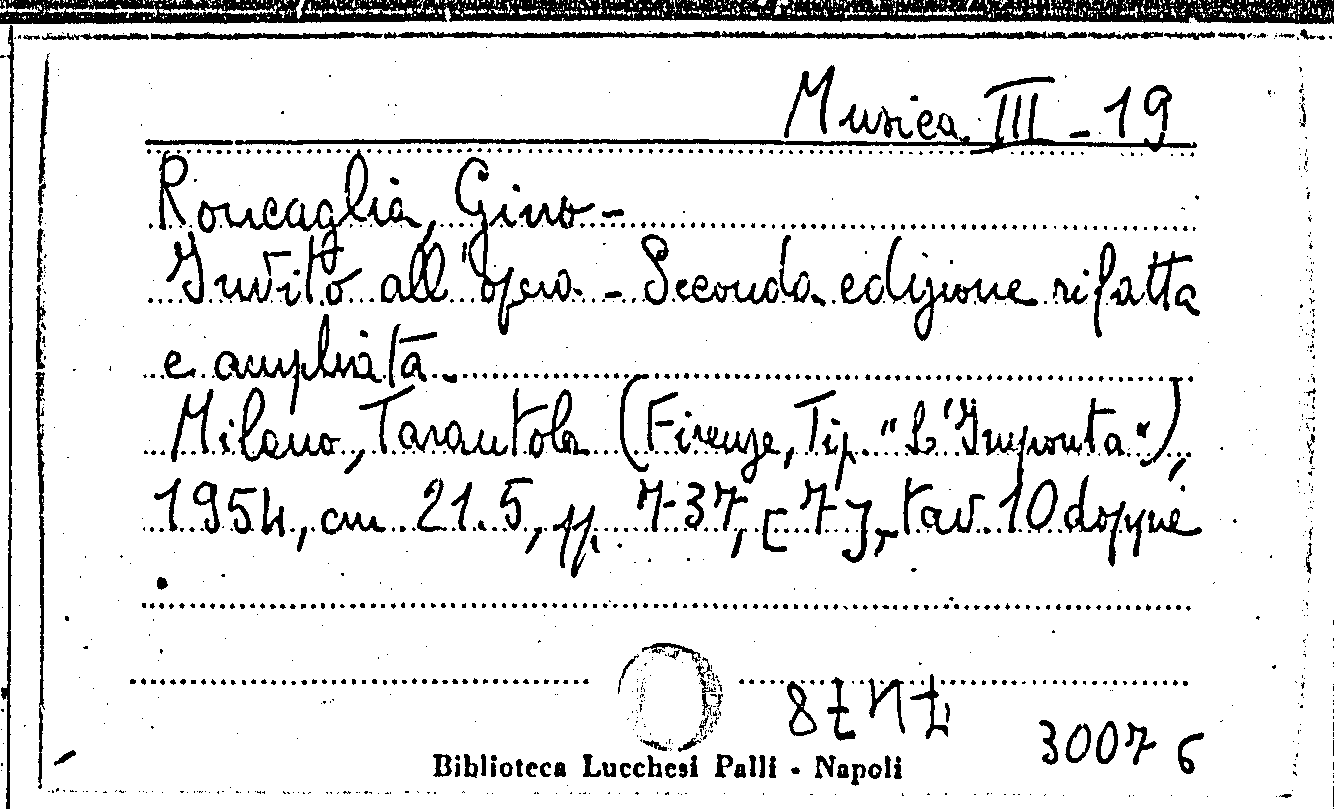 Musica III - 19
Roncaglia, Gino -
Invito all'opera - Seconda edizione rifatta
e ampliata.
Milano, Tarantola (Firenze, Tip. "L'Impronta"),
1954, cm 21.5, pp. 737, [7], tav. 10 doppie
30076
Biblioteca Lucchesi Palli - Napoli